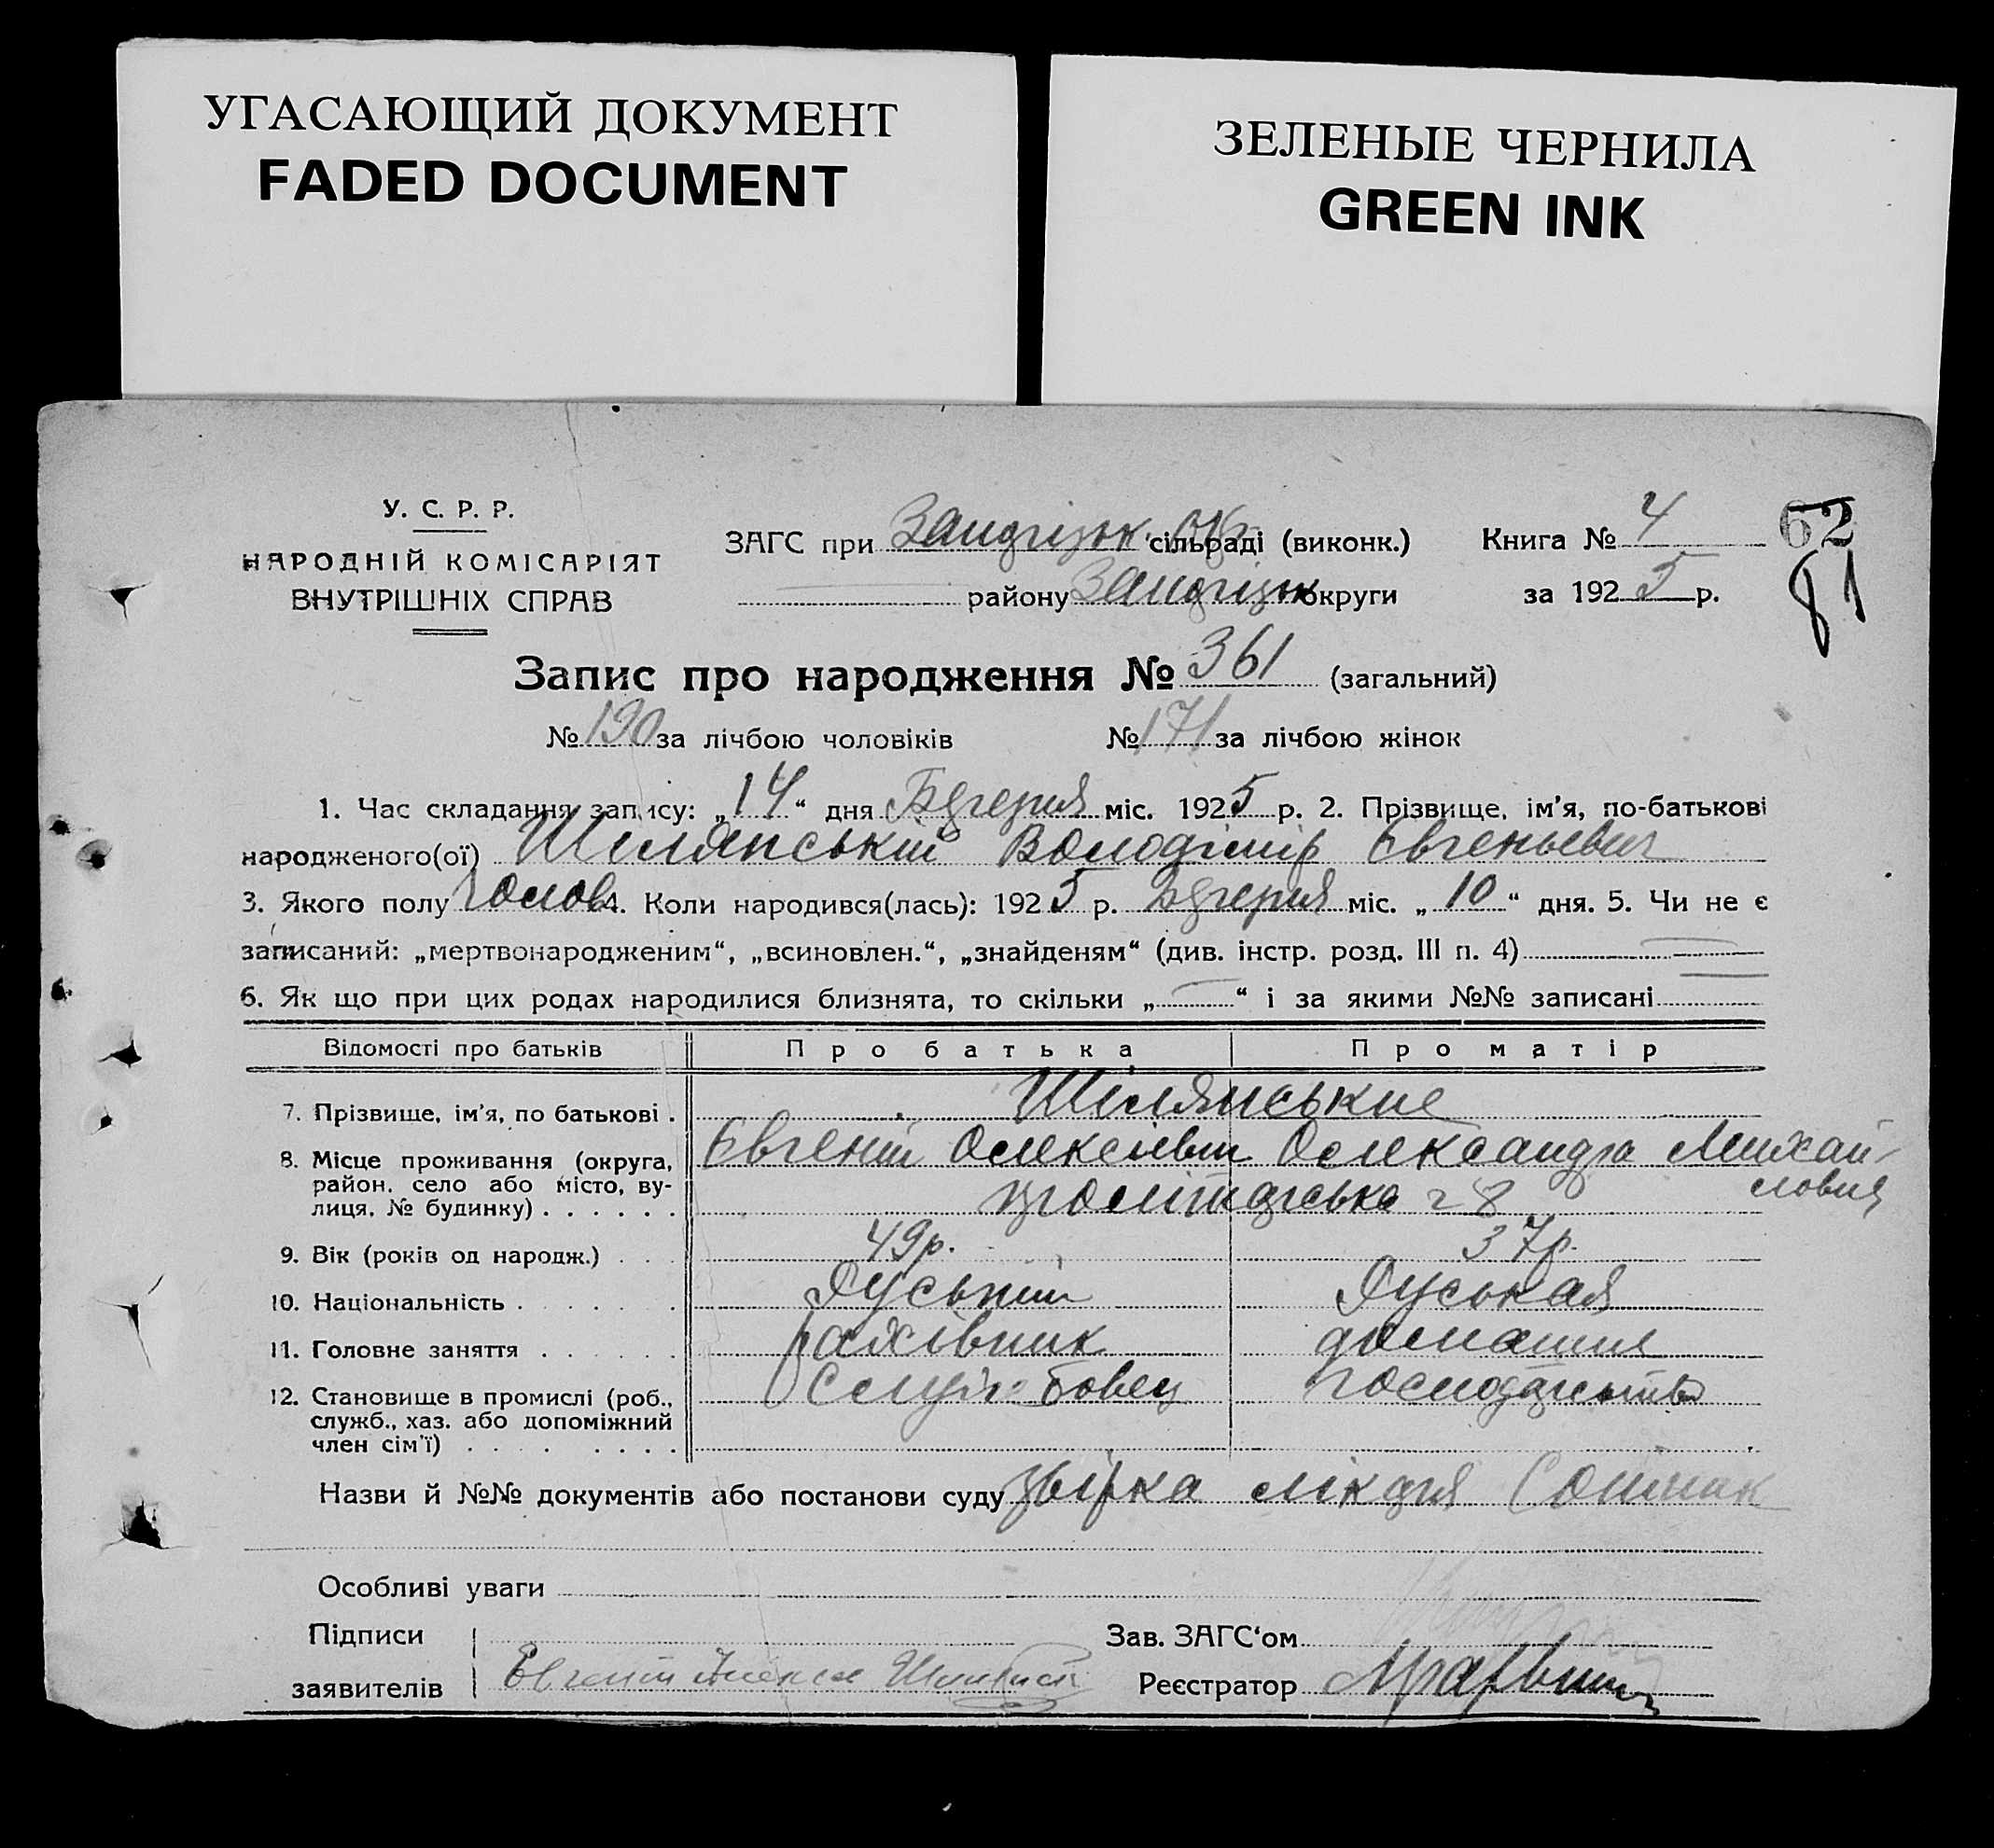 УГАСАЮЩИЙ ДОКУМЕНТ
FADED DOCUMENT
ЗЕЛЕНЫЕ ЧЕРНИЛА
GREEN INK
У. С. Р. Р.
НАРОДНІЙ КОМІСАРІЯТ
ВНУТРІШНІХ СПРАВ
ЗАГС при сільраді (виконк.)
району округи
Книга № 4
за 1925 р.
62
81
Запис про народження № 361 (загальний)
№ 190 за лічбою чоловіків № 171 за лічбою жінок
1. Час складання запису: „14“ дня міс. 1925 р. 2. Прізвище, ім’я, по-батькові
народженого(ої) Шілянський Володімір Євгеньевич
3. Якого полу Чолов. 4. Коли народився(лась): 1925 р. міс. „10“ дня. 5. Чи не є
записаний: „мертвонародженим“, „всиновлен.“, „знайденям“ (див. інстр. розд. III п. 4)
6. Як що при цих родах народилися близнята, то скільки „ “ і за якими №№ записані
Відомості про батьків Про батька Про матір
7. Прізвище, ім’я, по батькові . Шілянськие
8. Місце проживання (округа, район, село або місто, вулиця, № будинку) . . . . . .
Євгений Олексієвич Олександра Михайловня
28
9. Вік (років од народж.) . . . 49р. 37р.
10. Національність . . . . . . . Руський Руськая
11. Головне заняття . . . . . . рахівник домашня
12. Становище в промислі (роб., служб., хаз. або допоміжний член сім’ї) . . . . . . . Службовец господарство
Назви й №№ документів або постанови суду
Особливі уваги
Підписи
заявителів Евгений
Зав. ЗАГС‘ом
Реєстратор